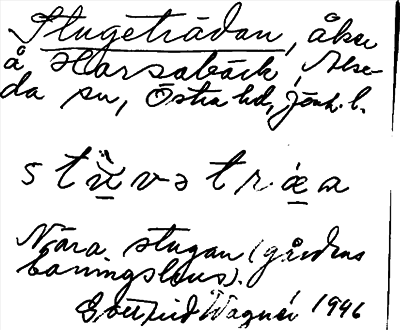 Stugeträdan, åker
å Harsabäck, Alse-
da sn, Östra hd, Jönk. l.
stu̇vətræa
Nära stugan (gårdens
boningshus).
Gottfrid Wagnér 1946